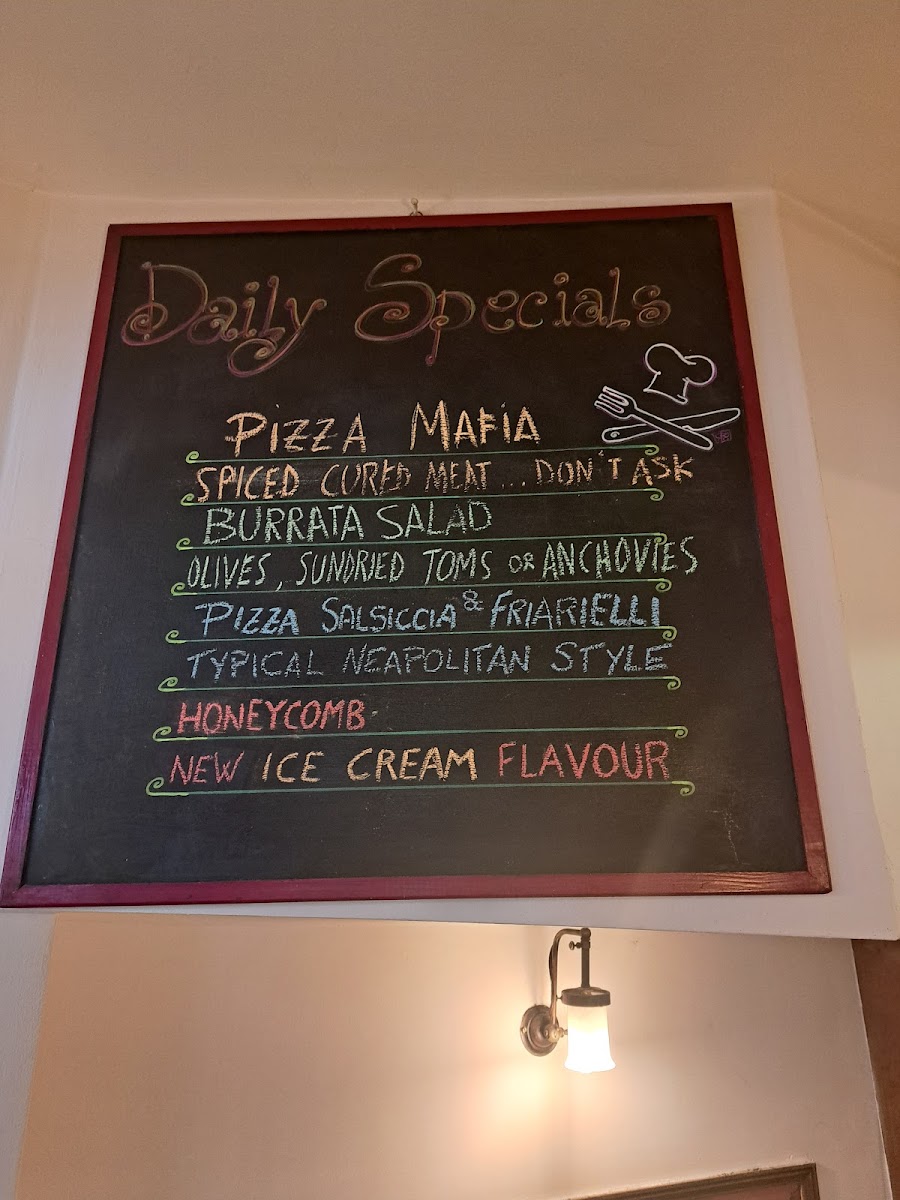 Daily Specials
PIZZA MAFIA
SPICED CURED MEAT... DON'T ASK
BURRATA SALAD
OLIVES, SUNDRIED TOMS OR ANCHOVIES
PIZZA SALSICCIA & FRIARIELLI
TYPICAL NEAPOLITAN STYLE
HONEYCOMB
NEW ICE CREAM FLAVOUR